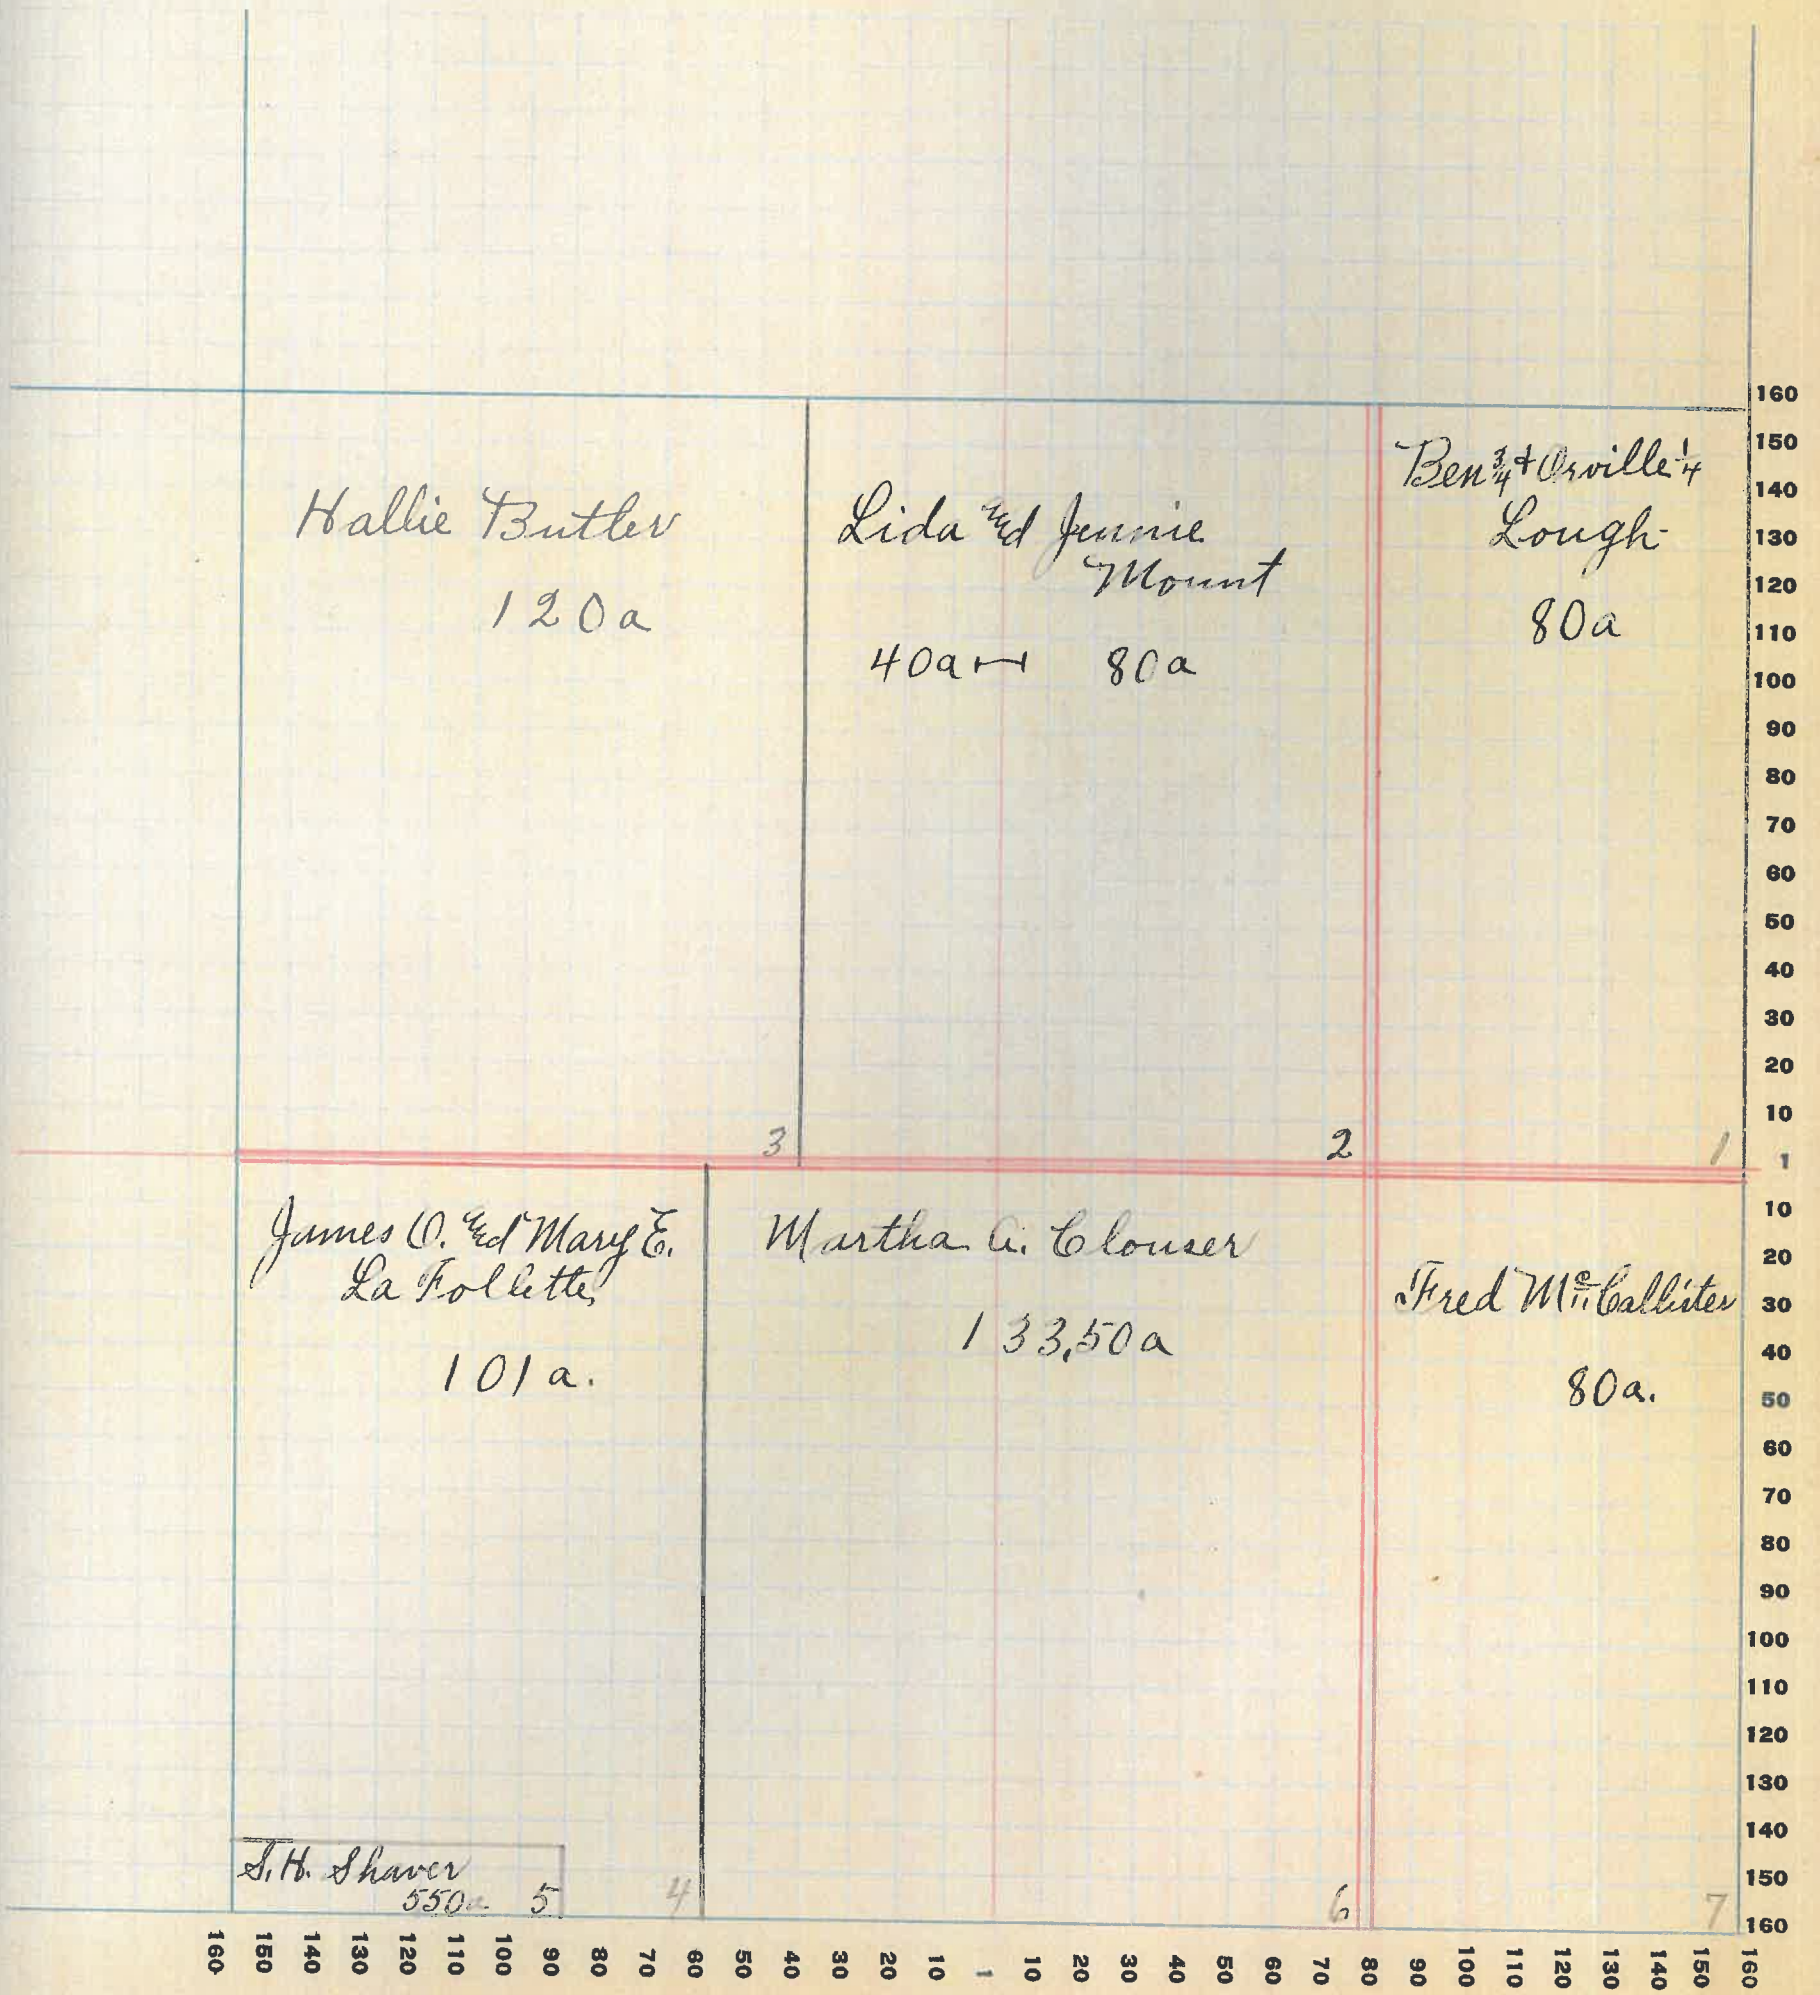 Hallie Butler
120a
3
Lida and Jennie
Mount
40a 80a
2
Ben 3/4 & Orville 1/4
Lough
80a
1
James O. and Mary E.
La Follette
101a.
4
S. H. Shaver
550a 5
Martha A. Clouser
133,50a
6
Fred McCallister
80a.
7
160
150
140
130
120
110
100
90
80
70
60
50
40
30
20
10
1
10
20
30
40
50
60
70
80
90
100
110
120
130
140
150
160
160 150 140 130 120 110 100 90 80 70 60 50 40 30 20 10 1 10 20 30 40 50 60 70 80 90 100 110 120 130 140 150 160